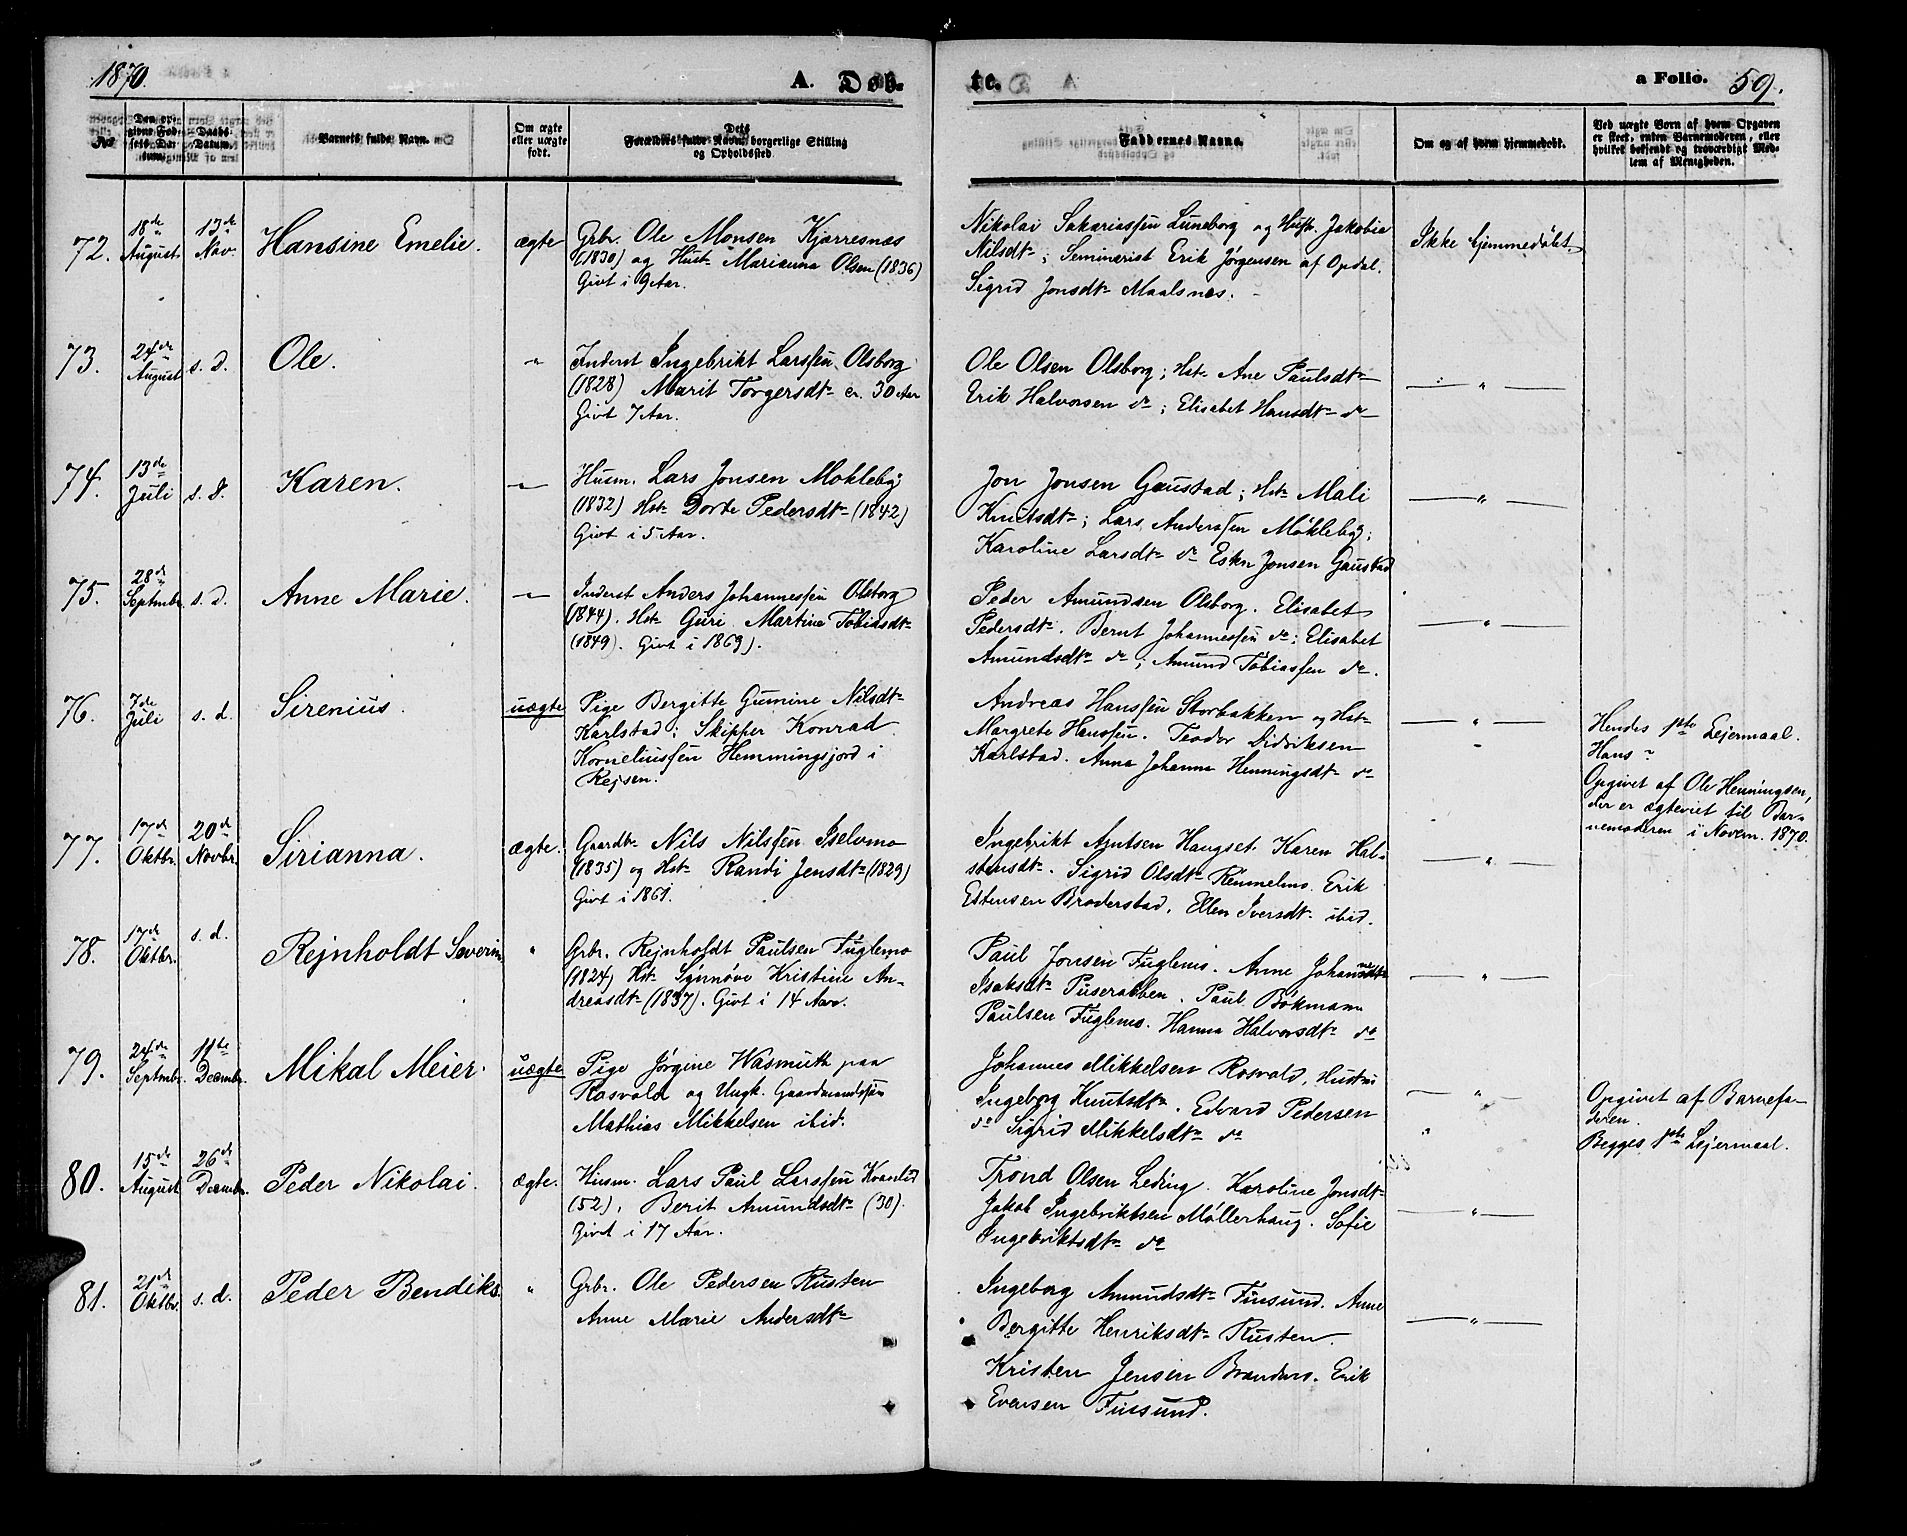 1870.
A. Døb-
te.
a Folio. 59.
No.
Den op-
givne Fød-
sels Da-
tum.
Daabs-
Datum.
Barnets fulde Navn.
Om ægte
eller uægte
født.
Dets
Forældres fulde Navn, borgerlige Stilling
og Opholdssted.
Faddernes Navne.
Om og af hvem hjemmedøbt.
Ved uægte Børn af hvem Opgaven
er skeet, enten Barnemoderen, eller
hvilket bekjendt og troværdigt Med-
lem af Menigheden.
72.
18de
August
13de
Nov.
Hansine Emelie.
ægte
Grbr. Ole Monsen Kjærresnæs
(1830) og Hust. Marianna Olsen (1836)
Givt i 9 Aar.
Nikolai Sakariassen Luneborg og Hustr. Jakobia
Nilsdtr; Seminarist Erik Jørgensen af Opdal.
Sigrid Jonsdtr Maalsnes.
Ikke hjemmedøbt.
73.
24de
August
s. D.
Ole.
"
Inderst Ingebrikt Larssen Olsborg
(1828) Marit Torgersdtr cr. 30 Aar
Givt 7 Aar.
Ole Olsen Olsborg; Hstr Ane Paulsdtr
Erik Halvorsen do; Elisabet Hansdtr do
— " —
74.
13de
Juli
s. d.
Karen.
"
Husm. Lars Jonsen Mokleby
(1832) Hstr Dorte Pedersdtr (1842)
Givt i 5 Aar.
Jon Jonsen Gaustad; Hstr Mali
Knutsdtr; Lars Anderssen Møkleby;
Karoline Larsdtr do Esten Jonsen Gaustad
— " —
75.
28de
Septmbr.
s. d.
Anne Marie.
"
Inderst Anders Johannessen Olsborg
(1844). Hstr Guri Martina Tobiasdtr
(1849). Givt i 1869).
Peder Amundsen Olsborg. Elisabet
Pedersdtr. Bernt Johannessen do; Elisabet
Amundsdtr do; Amund Tobiassen do.
— " —
76.
7de
Juli
s. d.
Sirenius.
uægte
Pige Bergitte Gumine Nilsdtr
Karlstad; Skipper Konrad
Korneliussen Hemmingsjord i
Rejsen.
Andreas Hanssen Storbakken og Hstr
Margrete Hanssen. Teodor Didriksen
Karlstad. Anna Johanna Henningsdtr do
— " —
Hendes 1ste Lejermaal.
Hans ?
Opgivet af Ole Henningsen,
der er ægteviet til Bar-
nemoderen i Novem. 1870.
77.
17de
Oktbr.
20de
Novbr.
Sirianna.
ægte.
Gaardbr. Nils Nilssen Iselvmo
(1835) og Hstr Randi Jensdtr (1829)
Givt i 1861.
Ingebrikt Arntsen Haugset. Karen Hal-
stensdtr. Sigrid Olsdtr Remmelmo. Erik
Estensen Brøderstad. Ellen Iversdtr ibid.
— " —
78.
17de
Oktbr.
s. d.
Rejnholdt Severin
"
Grbr. Rejnholdt Paulsen Fuglemo
(1824) Hstr Synnøve Kristine An-
dreasdtr (1837). Givt i 14 Aar.
Paul Jonsen Fuglemo. Anne Johanna
Isaksdtr Puserabben. Paul Bökmann
Paulsen Fuglemo. Hanna Halvorsdtr do
— " —
79.
24de
Septmbr.
11te
Decmbr.
Mikal Meier.
uægte
Pige Jørgine Wasmuth paa
Rosvold og Ungk. Gaardmandssøn
Mathias Mikkelsen ibid.
Johannes Mikkelsen Rosvold, Hustru
Ingeborg Knutsdtr. Edvard Pedersen
do Sigrid Mikkelsdtr do
— " —
"
Opgivet af Barnefa-
deren.
Begges 1ste Lejermaal.
80.
15de
August
26de
Decmbr.
Peder Nikolai.
ægte.
Husm. Lars Paul Larssen Kvanlid
(52). Berit Amundsdtr (30).
Givt i 17 Aar.
Trond Olsen Leding. Karoline Jonsdtr
Jakob Ingebriktsen Møllerhaug. Sofie
Ingebriktsdtr do
— " —
81.
21de
Oktbr.
s. d.
Peder Bendiks.
"
Grbr. Ole Pedersen Rusten
Anne Marie Andersdtr
Ingeborg Amundsdtr Finsund. Anne
Bergitte Henriksdtr Rusten.
Kristen Jensen Brandmo. Erik
Evensen Finsund.
— " —